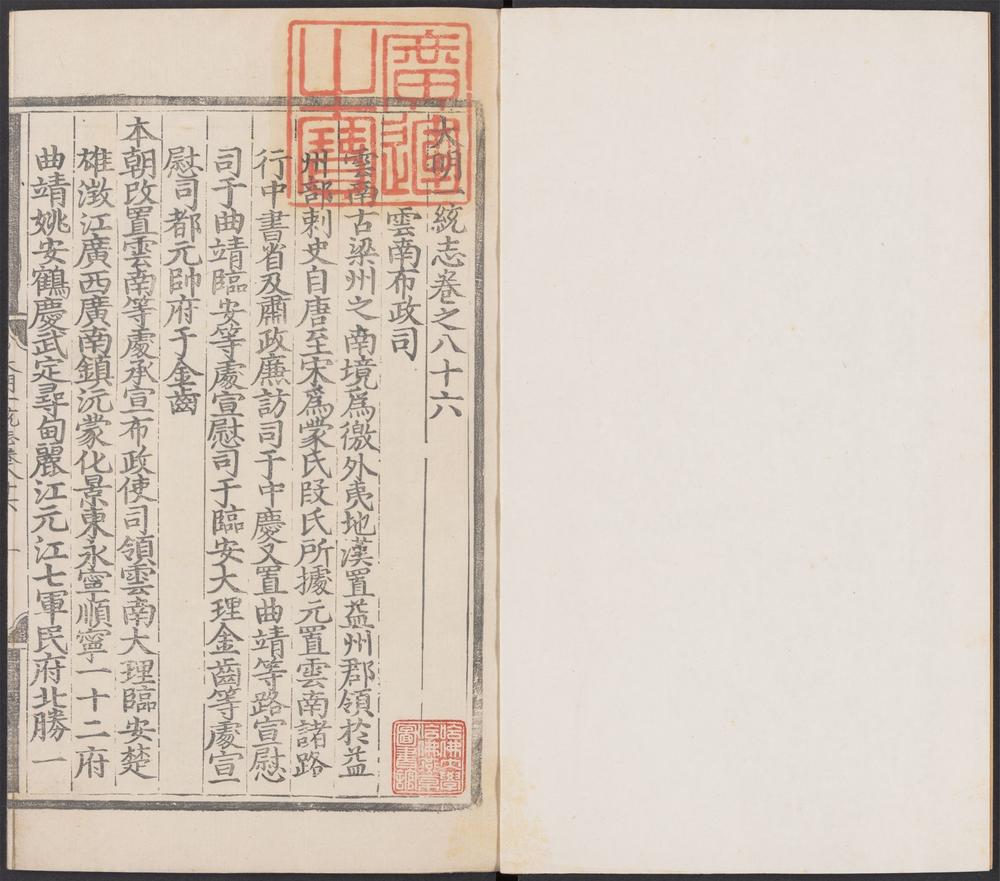 大明一統志卷之八十六
雲南布政司
雲南古梁州之南境爲徼外夷地漢置益州郡領於益
州部刺史自唐至宋爲蒙氏段氏所據元置雲南諸路
行中書省及肅政廉訪司于中慶又置曲靖等路宣慰
司于曲靖臨安等處宣慰司于臨安大理金齒等處宣
慰司都元帥府于金齒
本朝改置雲南等處承宣布政使司領雲南大理臨安楚
雄澂江廣西廣南鎮沅蒙化景東永寧順寧一十二府
曲靖姚安鶴慶武定尋甸麗江元江七軍民府北勝一
廣運之寶
哈佛大學哈佛燕京圖書館